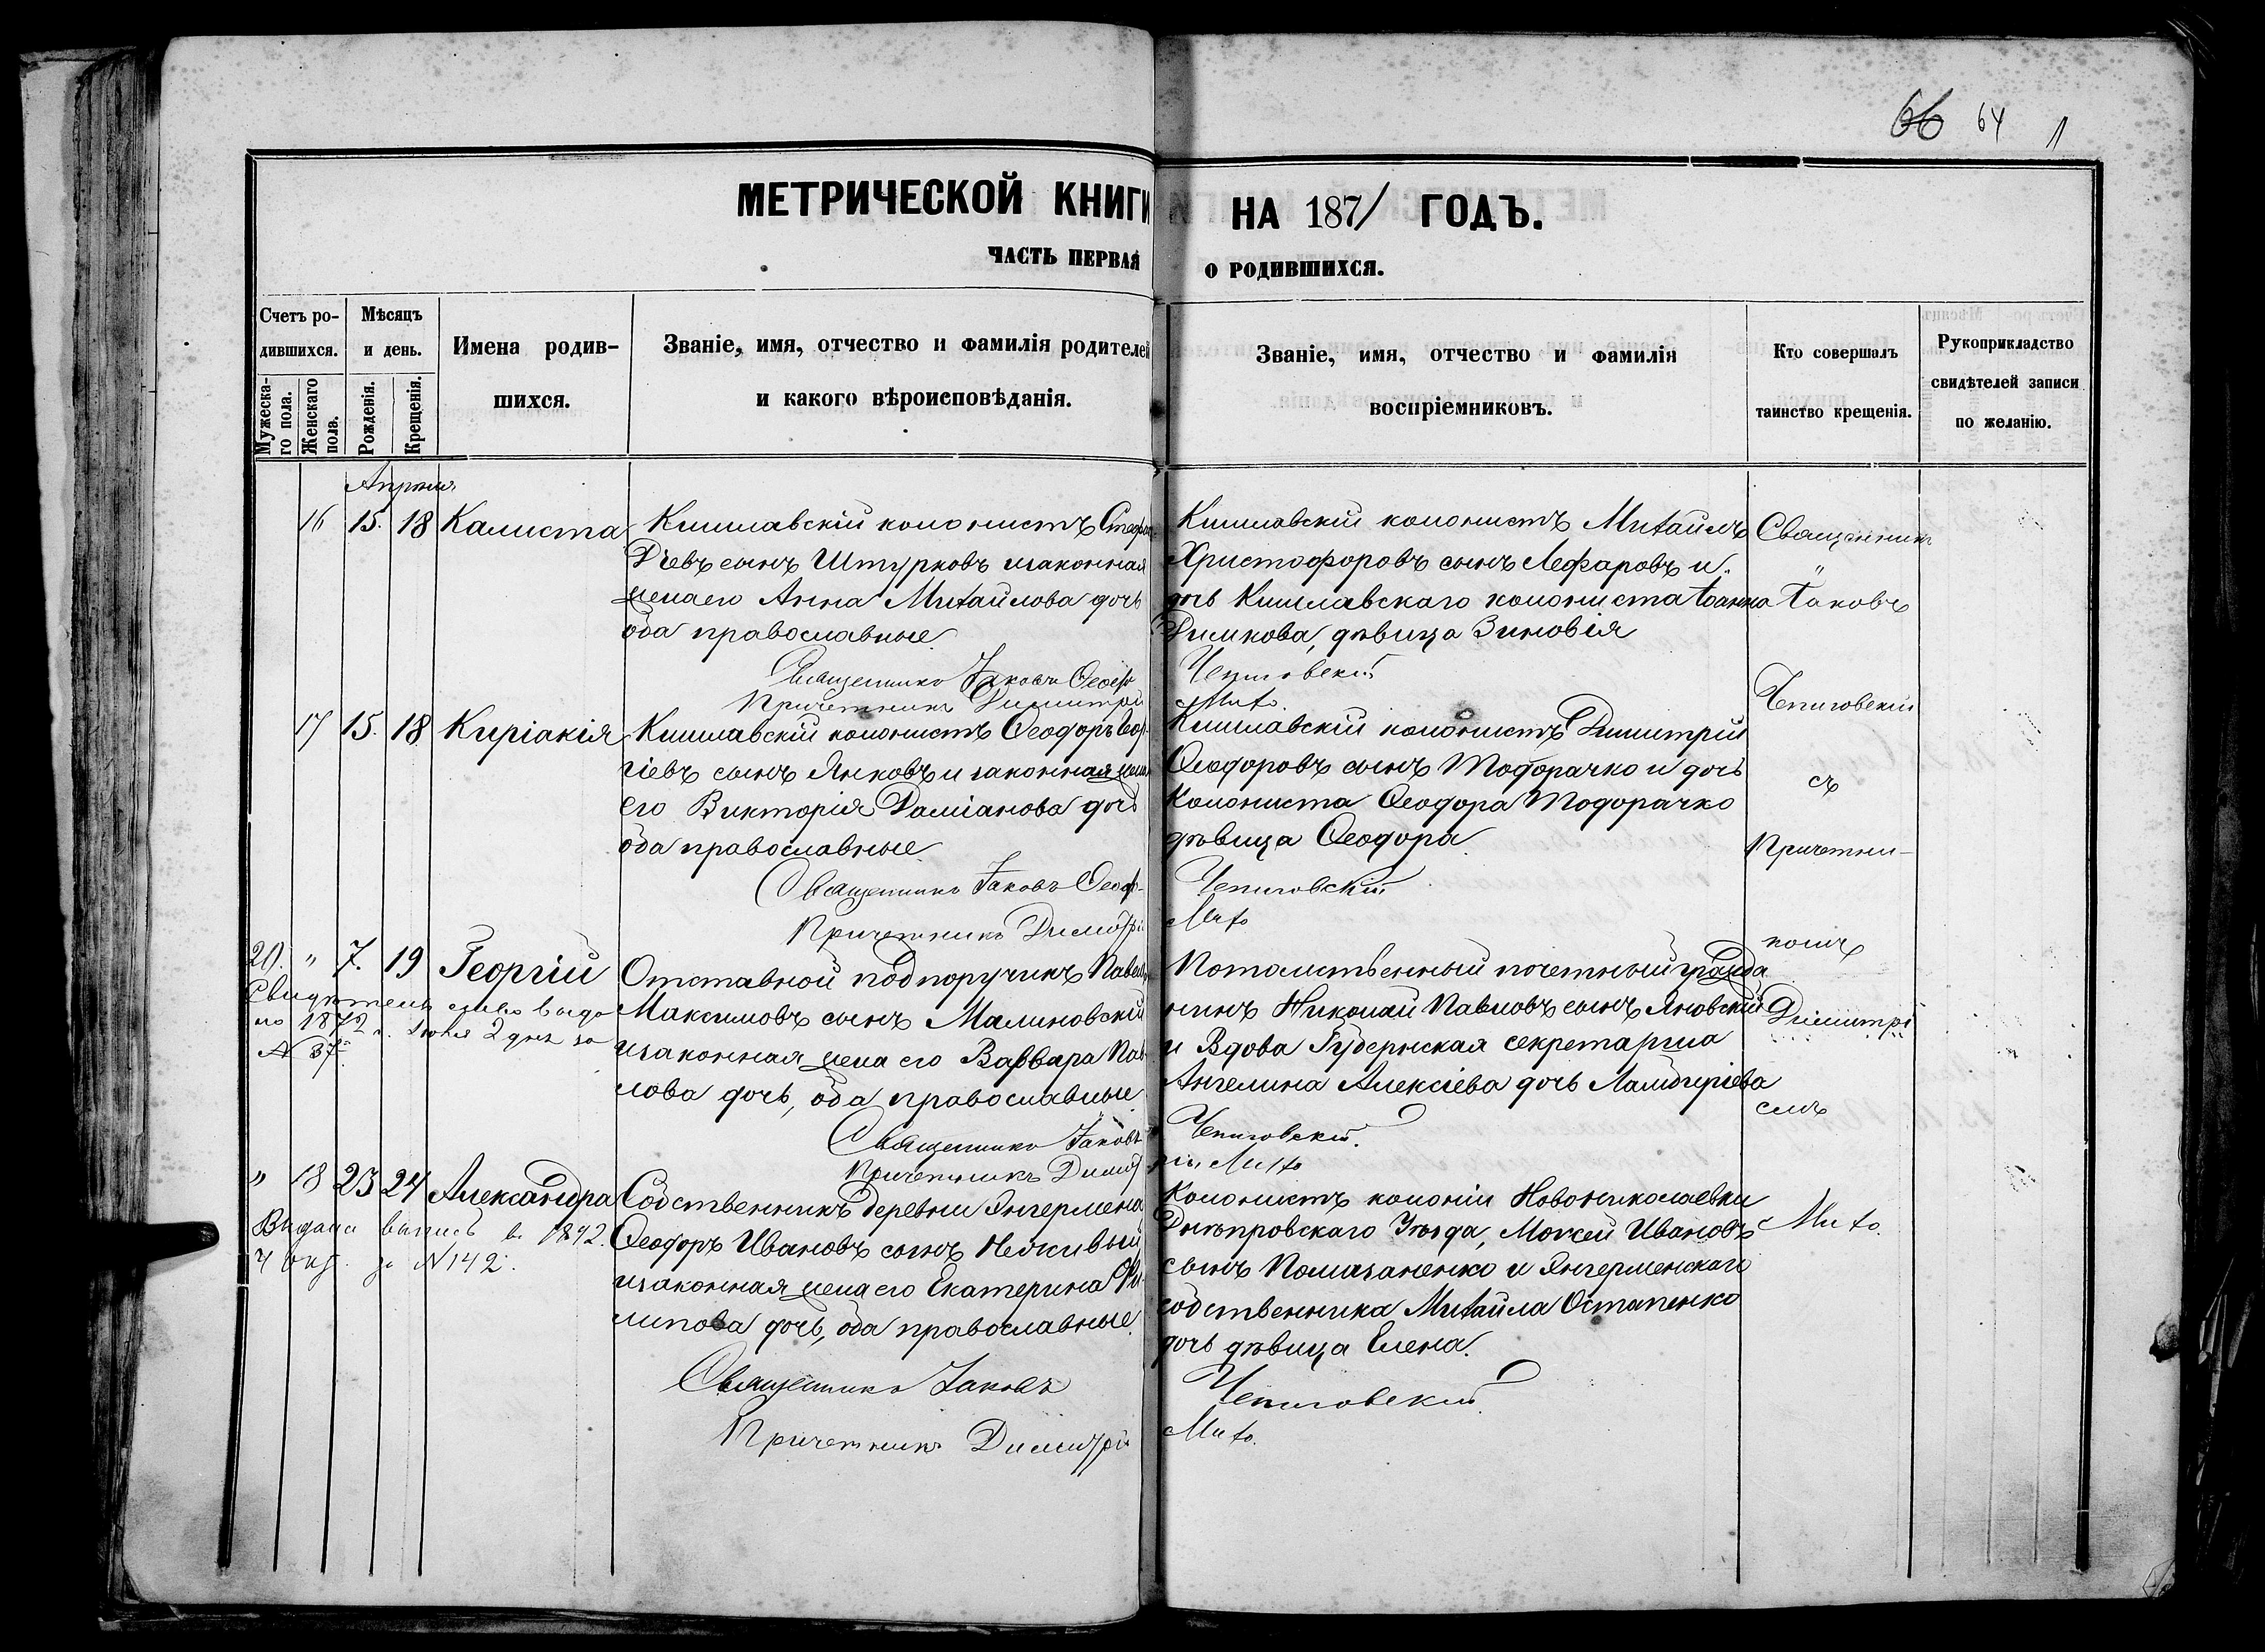 66 64 1
МЕТРИЧЕСКОЙ КНИГИ НА 1871 ГОДЪ.
ЧАСТЬ ПЕРВАЯ О РОДИВШИХСЯ.
Счетъ родившихся.
Мужескаго пола.
Женскаго пола.
Мѣсяцъ и день.
Рожденія.
Крещенія.
Имена родив-
шихся.
Званіе, имя, отчество и фамилія родителей
и какого вѣроисповѣданія.
Званіе, имя, отчество и фамилія
воспріемниковъ.
Кто совершалъ
таинство крещенія.
Рукоприкладство
свидѣтелей записи
по желанію.
Апрѣля
16 15. 18 Калиста
Кишлавскій колонистъ
сынъ Штурковъ и законная
жена его Анна Михайлова дочь
оба православные.
Священникъ Іаковъ
Причетникъ Димитрій
Кишлавскій колонистъ Михаилъ
Христофоровъ сынъ Лефаровъ и
дочь Кишлавскаго колониста Іоанна
Димкова, дѣвица Зиновія
Чепиговскій
Михо.
17 15. 18 Киріакія
Кишлавскій колонистъ Ѳеодоръ Геор-
гіевъ сынъ Янковъ и законная жена
его Викторія Даміанова дочь
оба православные.
Священникъ Іаковъ
Причетникъ Димитрій
Кишлавскій колонистъ Димитрій
Ѳеодоровъ сынъ Тодорачко и дочь
колониста Ѳеодора Тодорачко
дѣвица Ѳеодора.
Чепиговскій
Михо
20. " 7. 19 Георгій
Свидѣтельство выда
но 1872 г. Іюня 2 дня за
N 37
Отставной подпоручикъ Павелъ
Максимовъ сынъ Малиновскій
и законная жена его Варвара Пав-
лова дочь, оба православные
Священникъ Іаковъ
Причетникъ Димит
Потомственный почетный гражда
нинъ Николай Павловъ сынъ Яновскій
и Вдова Губернская секретарша
Ангелина Алексіева дочь
Чепиговскій.
рій Михо
" 18 23 24 Александра
Выдана выпись въ 1892.
за N 142.
Собственникъ деревни Ингермена
Ѳеодоръ Ивановъ сынъ Неживый
и законная жена его Екатерина Фи-
липова дочь, оба православные.
Священникъ Іаковъ
Причетникъ Димитрій
Колонистъ колоніи Новониколаевки
Днѣпровскаго Уѣзда, Моисей Ивановъ
сынъ Помазаненко и Янгерменскаго
собственника Михаила Остапенко
дочь дѣвица Елена.
Чепиговскій
Михо.
Священникъ
Іаковъ
Чепиговскій
съ
Причетни-
комъ
Димитрі
емъ
Михо.